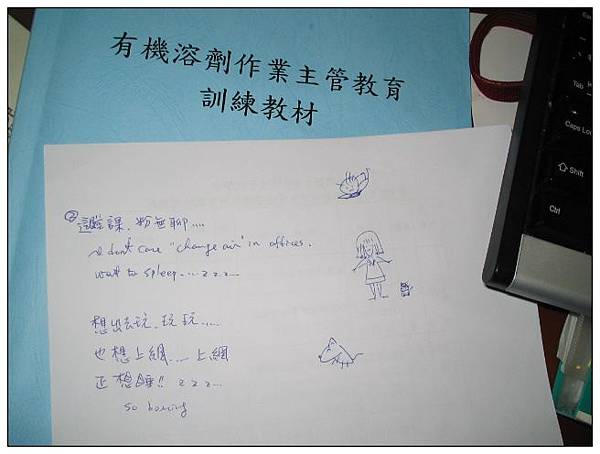 有機溶劑作業主管教育
訓練教材
② 這堂課、粉無聊....
I don't care "change air" in offices.
want to sleep....zzz...
想出去玩、玩玩.....
也想上網....上網
正想睡!! zzz...
so boring
Tab
Caps Lo
Shift
Ctrl